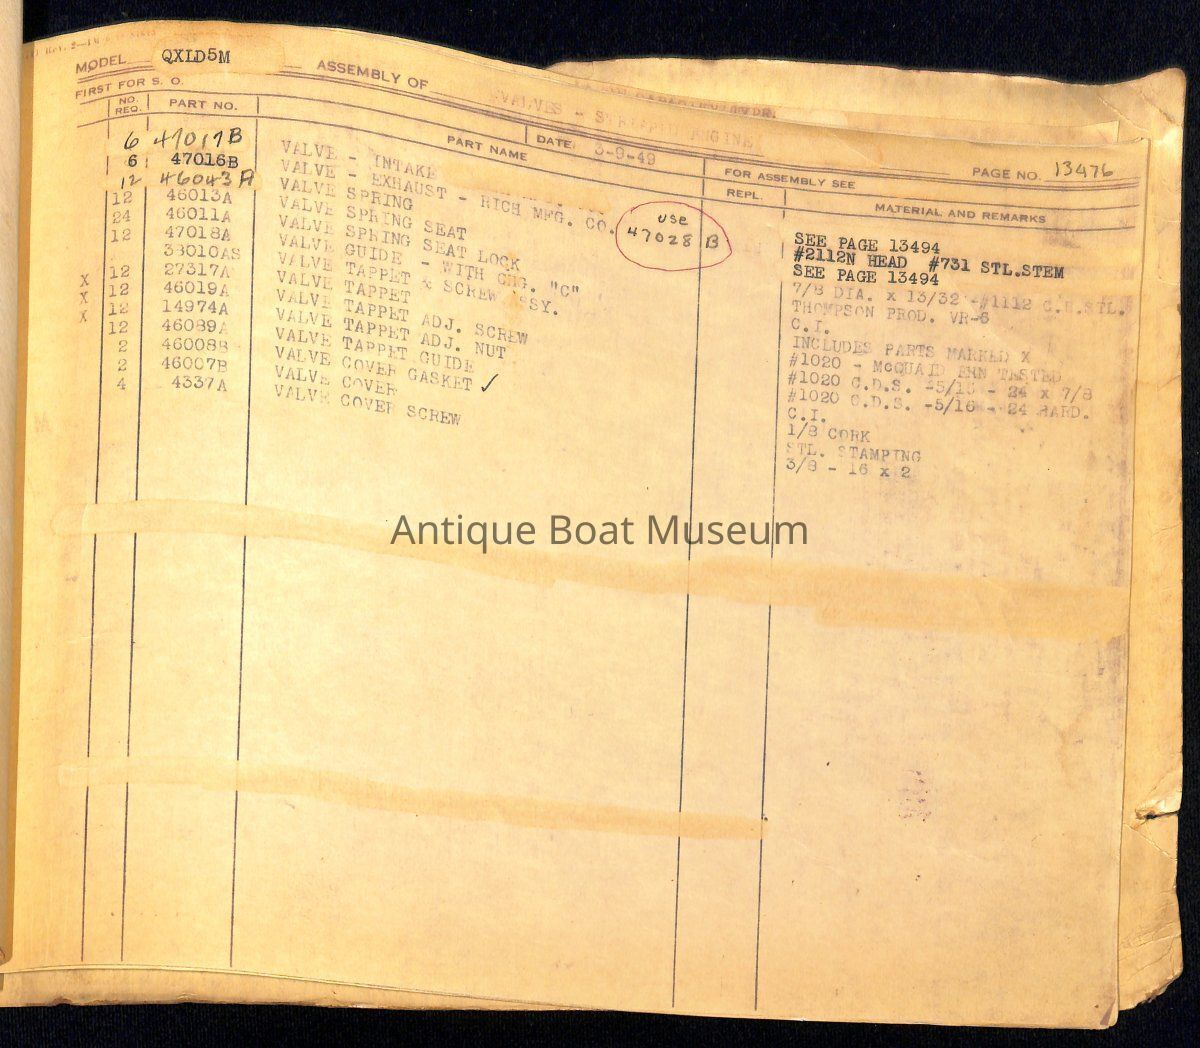 MODEL QXLD5M ASSEMBLY OF VALVES - STRIPPED ENGINE
FIRST FOR S. O. DATE: 3-9-49 PAGE NO. 13476
FOR ASSEMBLY SEE
NO. REQ. PART NO. PART NAME REPL. MATERIAL AND REMARKS
6 47017B VALVE - INTAKE SEE PAGE 13494
6 47016B VALVE - EXHAUST - RICH MFG. CO. use 47028B #2112N HEAD #731 STL.STEM
12 46043A VALVE SPRING SEE PAGE 13494
12 46013A VALVE SPRING SEAT 7/8 DIA. x 13/32 -#1112 C.R.STL.
24 46011A VALVE SPRING SEAT LOCK THOMPSON PROD. VR-6
12 47018A VALVE GUIDE - WITH CHG. "C" C.I.
38010AS VALVE TAPPET & SCREW ASSY. INCLUDES PARTS MARKED X
X 12 27317A VALVE TAPPET #1020 - McQUAID EHN TESTED
X 12 46019A VALVE TAPPET ADJ. SCREW #1020 C.D.S. -5/16 - 24 x 7/8
X 12 14974A VALVE TAPPET ADJ. NUT #1020 C.D.S. -5/16 - 24 HARD.
12 46089A VALVE TAPPET GUIDE C.I.
2 46008B VALVE COVER GASKET ✓ 1/8 CORK
2 46007B VALVE COVER STL. STAMPING
4 4337A VALVE COVER SCREW 3/8 - 16 x 2
Antique Boat Museum